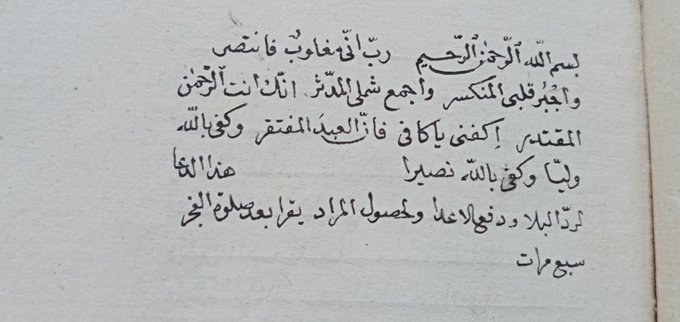 بسم الله الرحمن الرحيم رب انى مغلوب فانتصر
واجبر قلبى المنكسر واجمع شملى المدثر انك انت الرحمن
المقتدر اكفنى ياكافى فانى العبد المفتقر وكفى بالله
وليا وكفى بالله نصيرا هذا الدعا
لرد البلا ودفع الاعدا ولحصول المراد يقرا بعد صلوة الفجر
سبع مرات